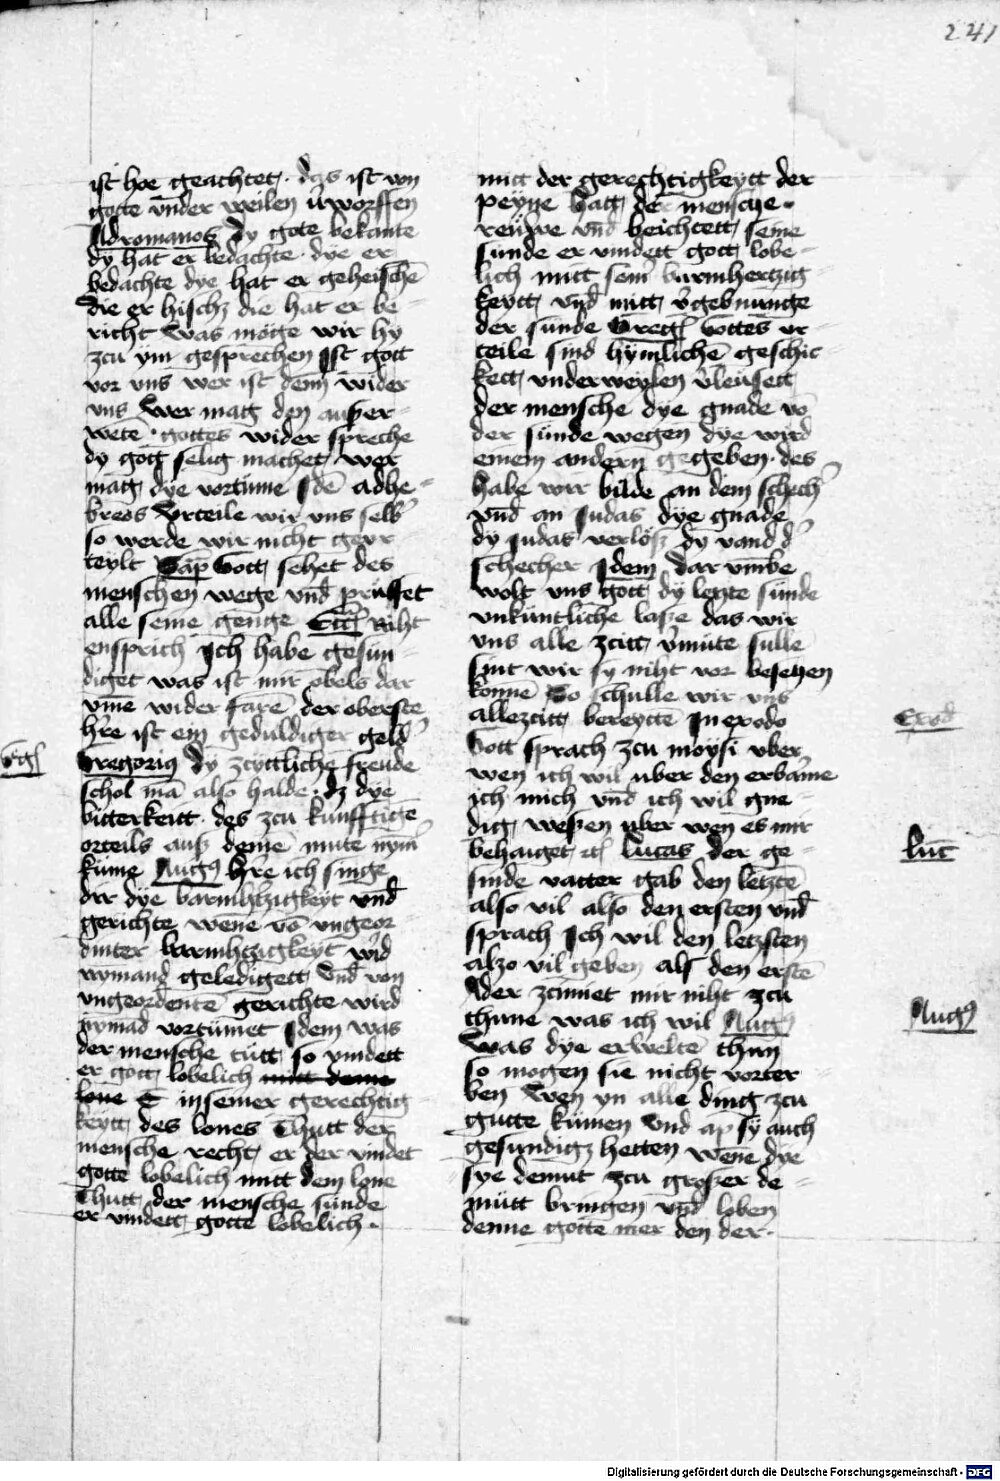 241
ist hoe geachtet · das ist von
gotte vnder weilen v̉worffen
Adromanos Dy gote bekante
dy hat er bedachte · dye er
bedachte dye hat er geheischē
die er hisch die hat er be-
richt Was moge wir hy
zcu ym gesprechen Ist gott
vor vns wer ist denn wider
vns Wer mag den auszer-
wetē · gottes wider spreche
dy gott selig machet · wer
mag dye vortūme Idē adhe-
breos Vrteile wir vns selb̉
so werde wir nicht gevr-
teylt Sap̄ Gott sehet des
menschen wege vnd̄ prüffet
alle seine genge niht
ensprich Ich habe gesūn-
diget was ist mir obels dar
vm̄e wider farē der oberste
hr̄e ist ein geduldiger geld̉
Gregorius Dy zcyttliche freude
schol mā also halde · dz dye
bitterkeitt · des zcu kunfftigē
orteils ausz deinē mute nym̄
kūme Augꝰ Hr̄e ich singe
dir dye barmh̉tzigkeyt vnd̄
gerichte wēne vō vngeor
dinter barmh̉tzigkeyt wird
nymand geledigett Vnd̄ von
vngeordentē gerichte wird
nymād vortūmet Idem was
der mensche tūtt so vindett
er gott lobelich mitt deme
lone E in seiner gerechtig-
keytt des lones Thutt der
mensche recht er der vindet
gotte lobelich mitt dem lone
Thutt der mensche sūnde
er vindett gotte lobelich ·
mitt der gerechtigkeytt der
peyne hatt der mensche ·
reuwe vnd̄ beichtett seine
sunde er vindett gott lobe-
lich mitt sein̉ barmhertzig
keytt vnd̄ mitt v̉gebnunge
der sunde Greg̉ Gottes vr-
teile sind hymlichē geschic
kett vnderweylen v̉leusett
der mensche dye gnade vō
der sūnde wegen dye wird
einem andern gegeben · des
habe wir bilde an dem schech̉
vnd̄ an Judas dye gnade
dy Judas verlosz dy vand d̉
schecher Idem Dar vmbe
wolt vns gott dy letzte sūnde
vnkūntliche lasze das wir
vns alle zcitt v̉mūte sulle
sint wir sy niht vor besehen
konnē So schulle wir vns
allezcitt bereytte In exodo
Gott sprach zcu moysi vber
wen ich wil vber den erbāme
ich mich vnd̄ ich wil gne-
dig weszen vber wen es mir
behaget Lucas der ge-
sinde vatter gab den letztē
also vil also den ersten vnd̄
sprach Ich wil den letzsten
alzo vil geben als den erstē
Ader zcimet mir niht zcu
thune was ich wil Augꝰ
Was dye erweltē thun
so mogen sie nicht vorter
ben Wen yn alle ding zcu
gutte kūmen Vnd ap sy auch
gesundigz hetten wēne dye
sye demut zcu groszer de-
mūtt bringen vnd̄ loben
denne gotte mer den der ·
Exod̄
Luc̄
Augꝰ
Digitalisierung gefördert durch die Deutsche Forschungsgemeinschaft - DFG